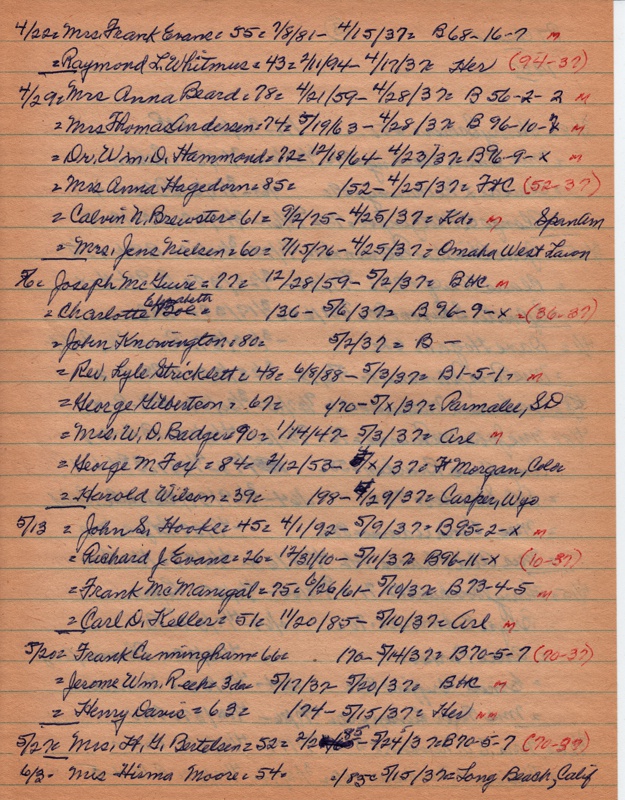 4/22= Mrs. Frank Evans= 55= 7/8/81- 4/15/37= B68-16-7 M
= Raymond L. Whitmus= 43= 2/11/94- 4/17/37= Her (94-37)
4/29= Mrs Anna Beard= 78= 4/21/59- 4/28/37= B 56-2-2 M
= Mrs Thomas Andersen= 74= 5/19/63- 4/28/37= B 96-10- M
= Dr. Wm. D. Hammond= 72= 12/18/64- 4/23/37= B96-9-x M
= Mrs Anna Hagedorn= 85= /52- 4/25/37= FHC (52-37)
= Calvin N. Brewster= 61= 9/2/75- 4/25/37= Kd= M SpanAm
= Mrs. Jens Nielsen= 60= 7/15/76- 4/25/37= Omaha West Lawn
5/6= Joseph McGuire= 77= 12/28/59- 5/2/37= BHC M
= Charlotte Elizabeth Boe= /36- 5/6/37= B 96-9-x =(36-37)
= John Knowington= 80= 5/2/37= B -
= Rev. Lyle Stricklett= 48= 6/8/88- 5/3/37= B1-5-1= M
= George Gilbertson= 67= /70- 5/x/37= Parmalee, SD
= Mrs. W. D. Badger= 90= 1/14/47- 5/3/37= Arl M
= George M Fox= 84= 2/12/53- /x/37= Ft Morgan, Colo
= Harold Wilson= 39= 198- /29/37= Casper, Wyo
5/13 = John S. Hook= 45= 4/1/92- 5/9/37= B95-2-x M
= Richard J. Evans= 26= 12/31/10- 5/11/37= B96-11-x (10-37)
= Frank McManigal= 75= 6/26/61- 5/10/37= B73-4-5 M
= Carl D. Keller= 51= 11/20/85- 5/10/37= Arl M
5/20= Frank Cunningham= 66= /70- 5/14/37= B70-5-7 (70-37)
= Jerome Wm. Reeh= 3da= 5/17/37- 5/20/37= BHC M
= Henry Davis= 63= /74- 5/15/37= Her MM
5/27= Mrs. H. G. Bertelsen= 52= 85- 5/24/37= B70-5-7 (70-37)
6/3- Mrs Hisma Moore= 54= =/83= 5/15/37= Long Beach, Calif